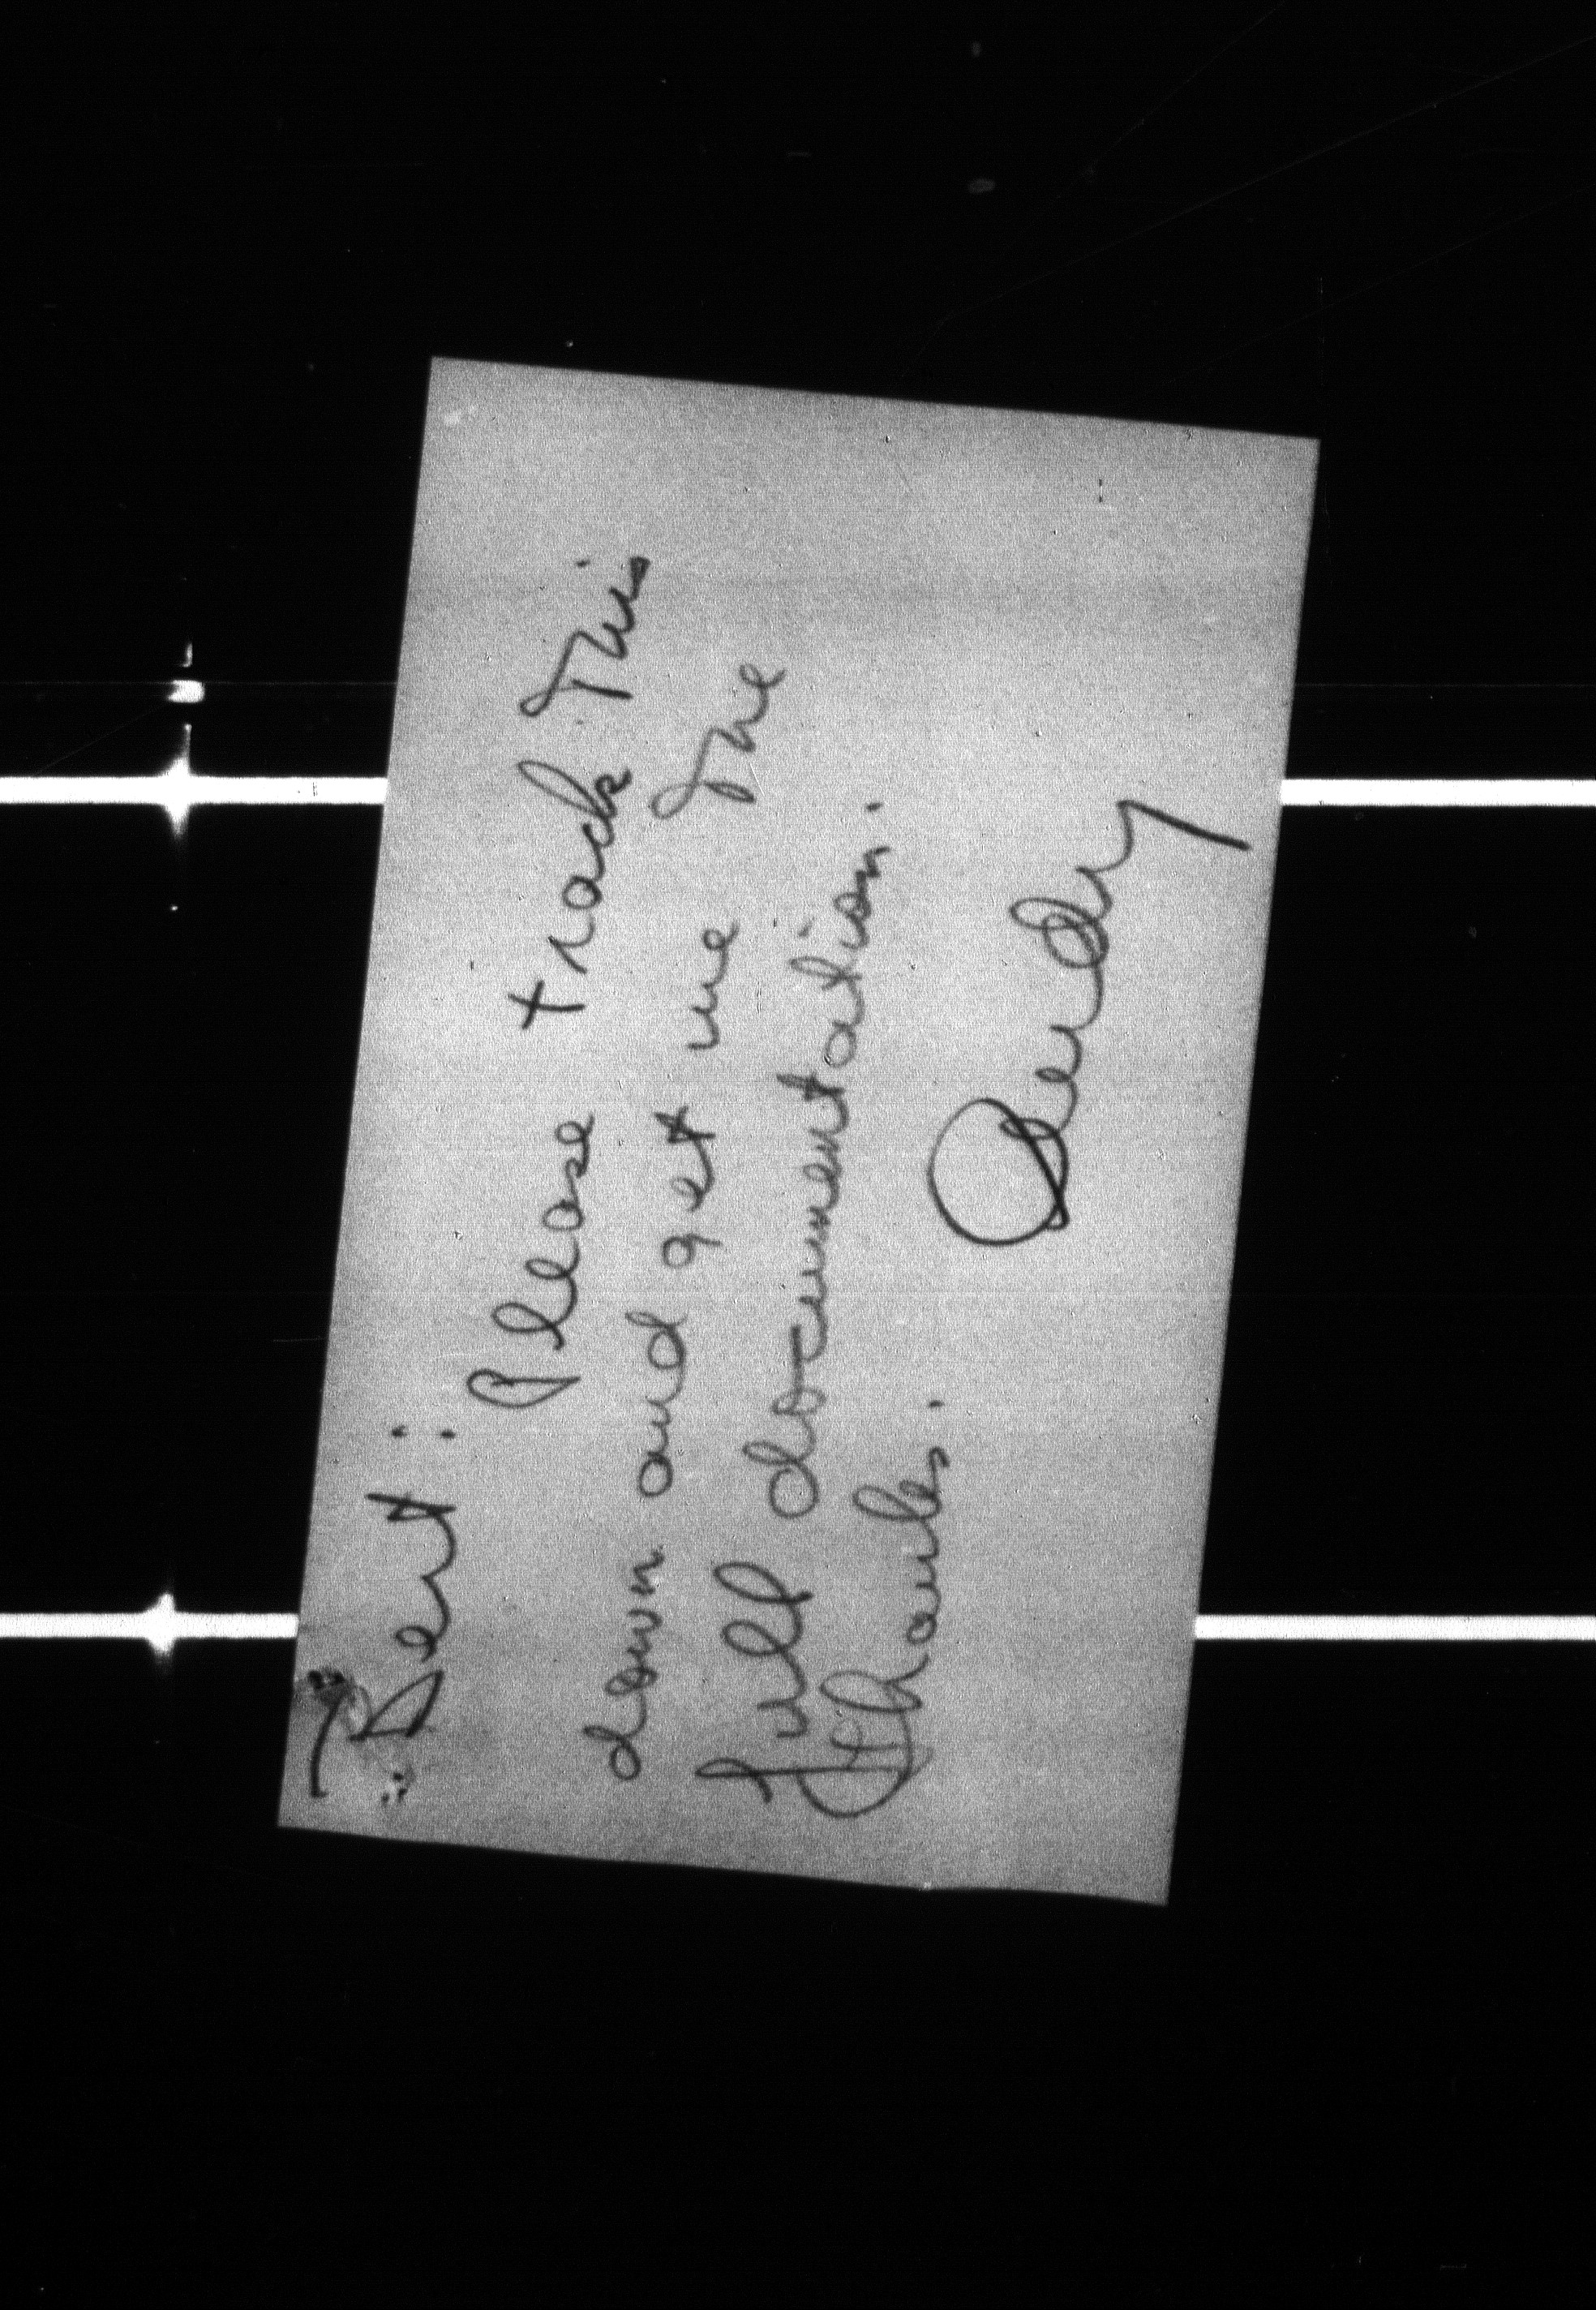 Bert:
Please track This
down and get me The
full documentation.
Thanks.
Andy